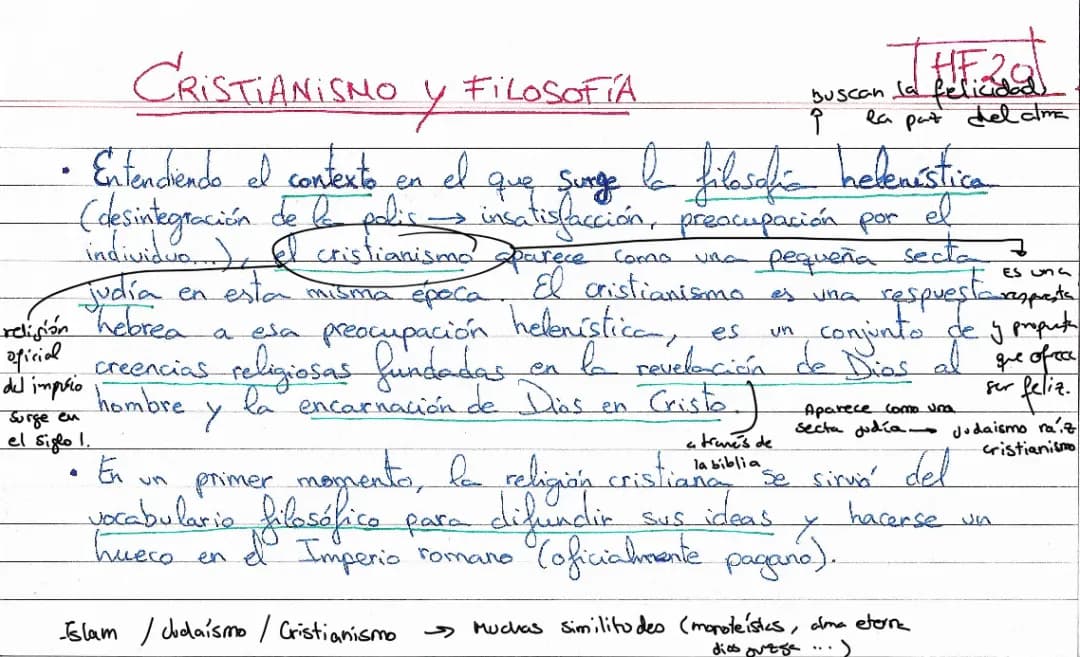 CRISTIANISMO Y FILOSOFÍA
HF20
buscan la felicidad,
la paz del alma
• Entendiendo el contexto en el que surge la filosofía helenística
(desintegración de la polis → insatisfacción, preocupación por el
individuo...), el cristianismo aparece como una pequeña secta
judía en esta misma época. El cristianismo es una respuesta
hebrea a esa preocupación helenística, es un conjunto de
creencias religiosas fundadas en la revelación de Dios al
hombre y la encarnación de Dios en Cristo.
es una
respuesta
y propuesta
que ofrece
ser feliz.
religión
oficial
del imperio
surge en
el siglo 1.
a través de
la biblia
Aparece como una
secta judía → Judaismo raíz
cristianismo
• En un primer momento, la religión cristiana se sirvió del
vocabulario filosófico para difundir sus ideas y hacerse un
hueco en el Imperio romano (oficialmente pagano).
-Islam / Judaísmo / Cristianismo → Muchas similitudes (monoteístas, alma eterna
dios juzga ...)